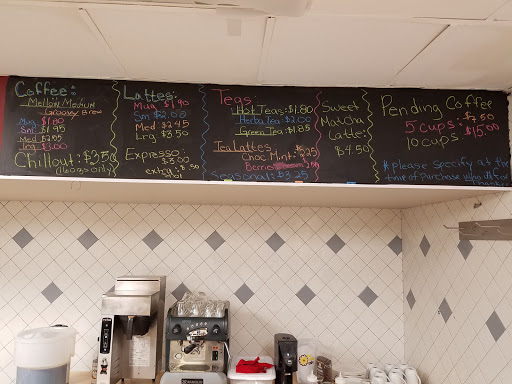 Coffee:
Mellow Medium
Groovey Brew
Mug $1.80
Sml $1.95
Med $2.55
Lrg $3.00
Chillout: $3.50
(16oz only)
Lattes:
Mug $1.90
Sm $2.00
Med $2.45
Lrg $3.50
Expresso:
$3.00
extra: $.50
shot
Teas:
Hot Teas: $1.80
Herbal tea: $2.00
Green Tea: $1.85
Tea Lattes:
Choc Mint:
Berries
Seasonal: $3.25
Sweet
Matcha
Latte:
$4.50
Pending Coffee
5 cups: $7.50
10 cups: $15.00
*please specify at the
time of purchase who